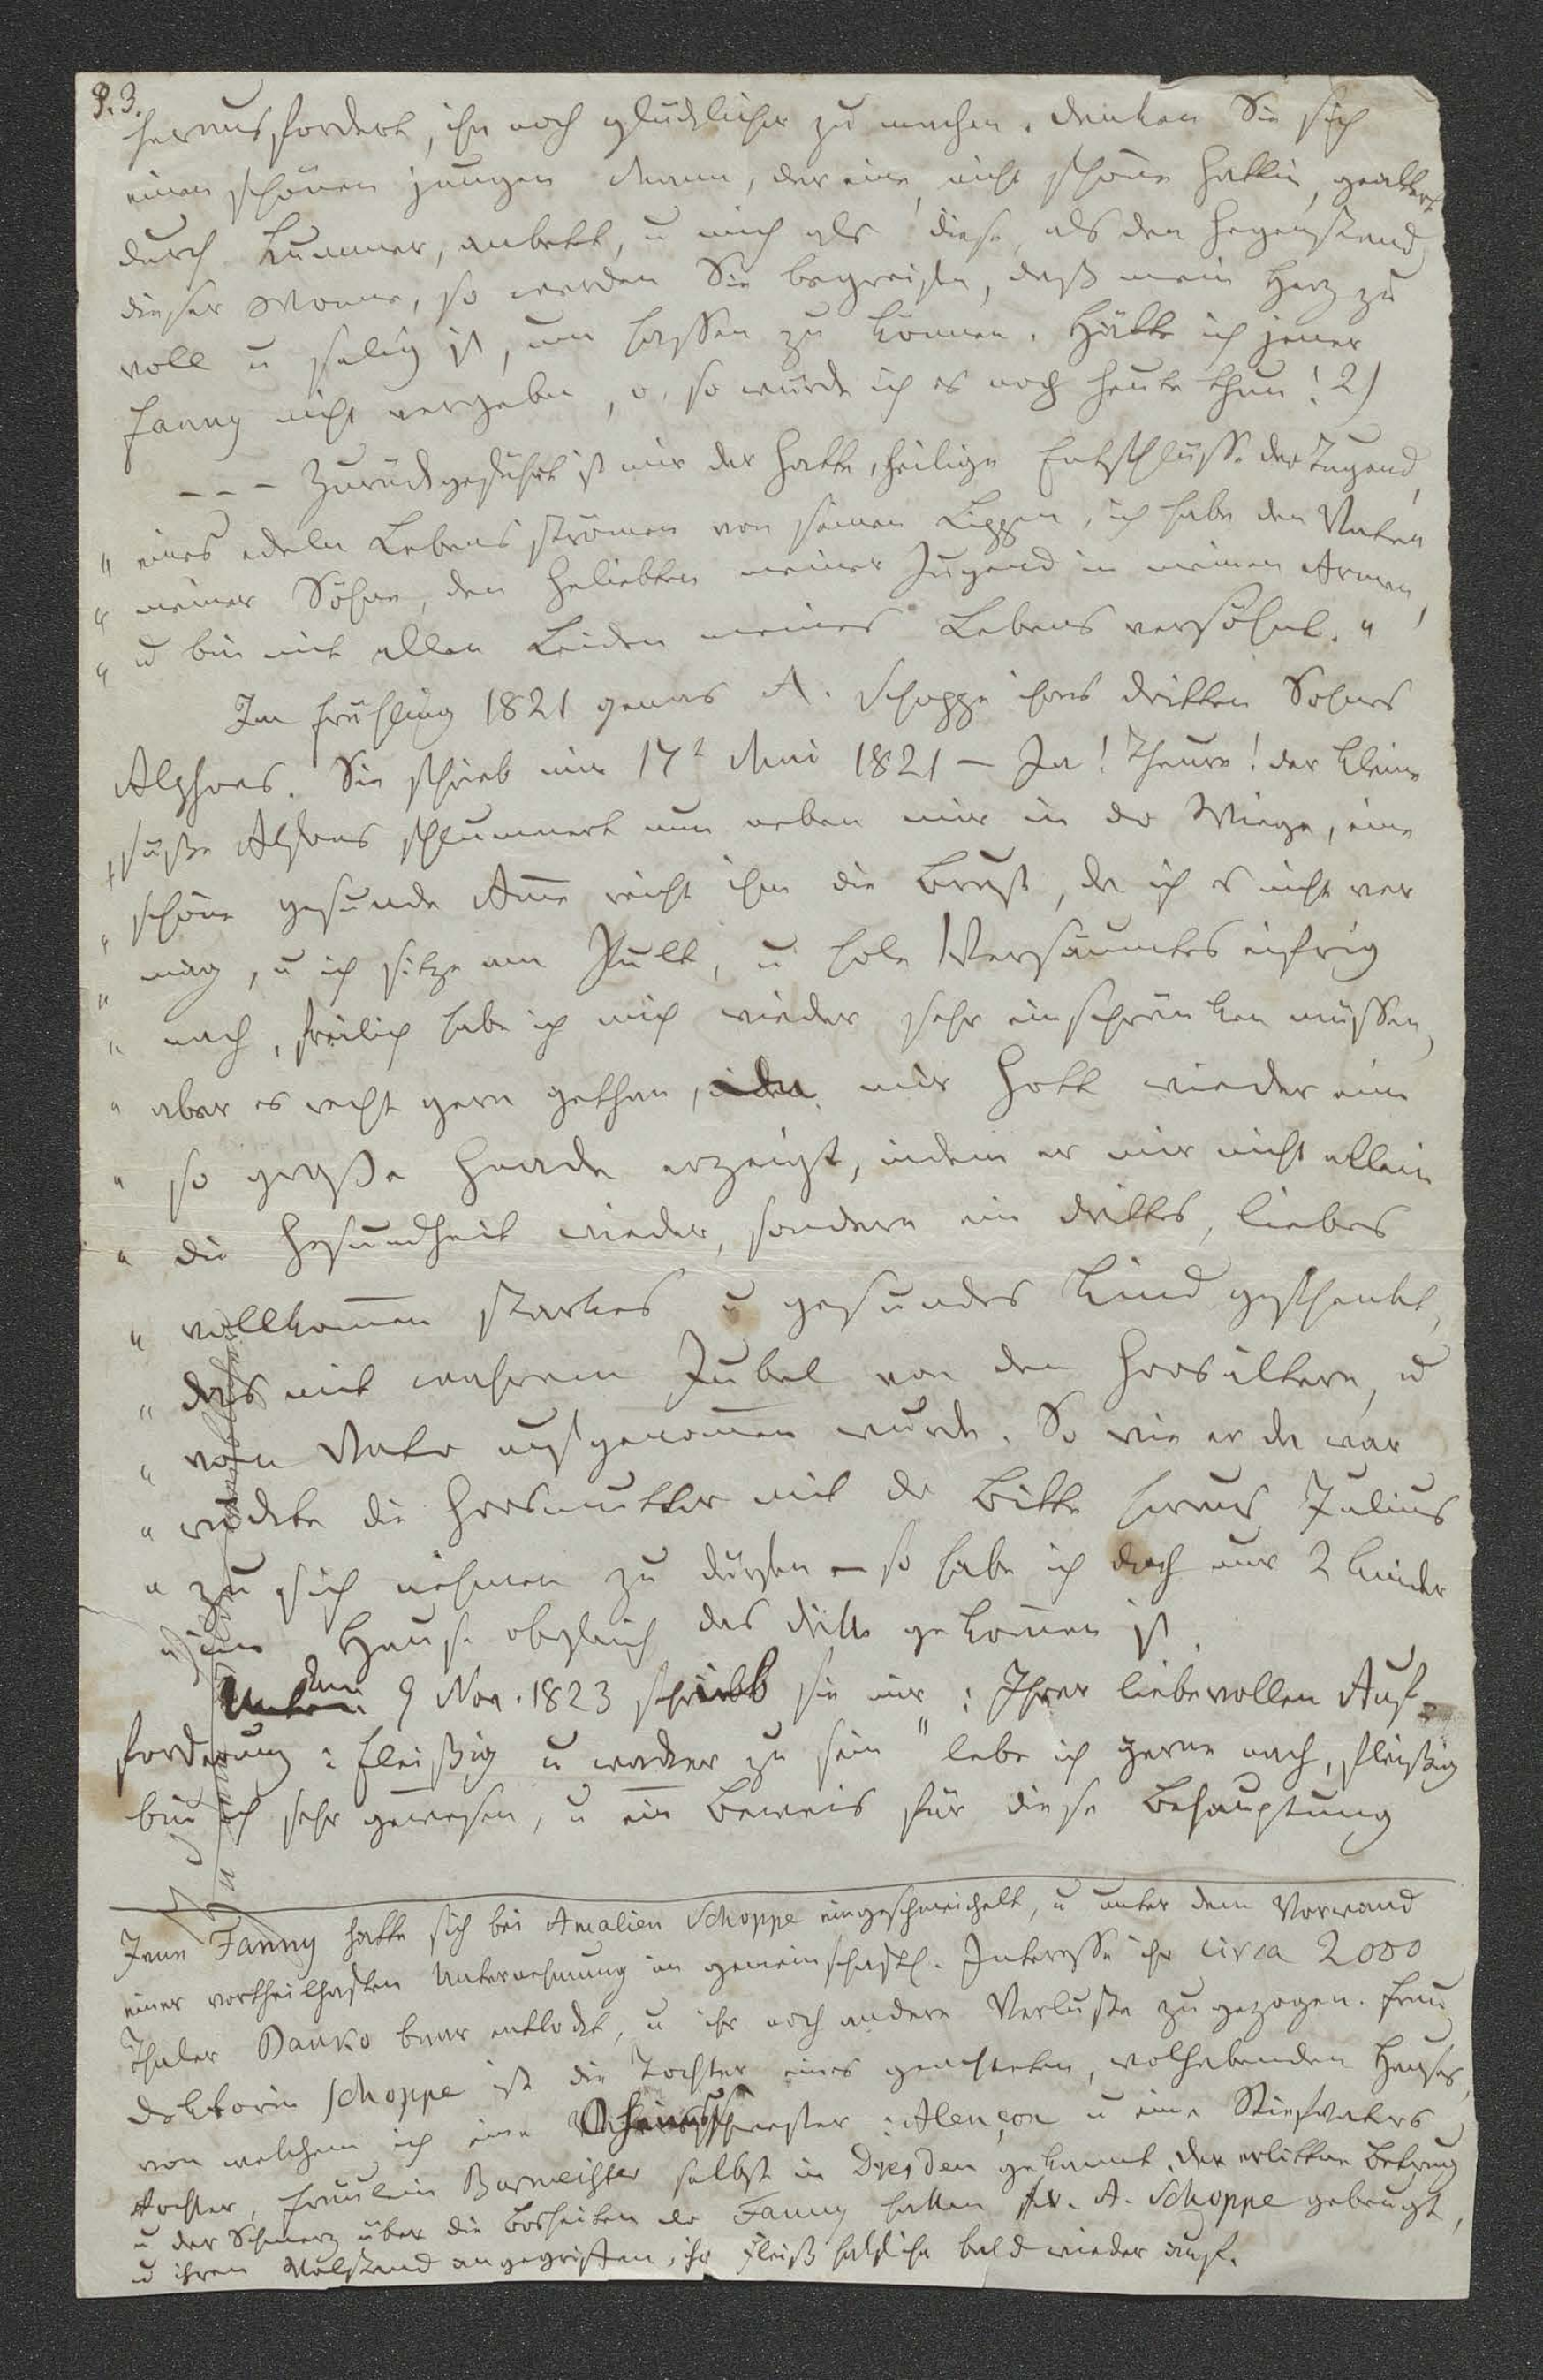 P. 3.
herausfordert, ihn noch glücklicher zu machen. Denken Sie sich
einen schönen jungen Mann, der eine nicht schöne Gattin, gealtert
durch Kummer, anbetet, u mich als diese, als den Gegenstand
dieser Wonne, so werden Sie begreifen, daß mein Herz zu
voll u selig ist, um hassen zu können. Hätte ich jener
Fanny nicht vergeben, o, so würde ich es noch heute thun! 2)
- - - Zurückgeführt ist mir der Gatte, heilige Entschlüsse der Tugend,
" eines edeln Lebens strömen von seinen Lippen, ich habe den Vater
" meiner Söhne, den Geliebten meiner Jugend in meinen Armen,
" u bin mit allen Leiden meines Lebens versöhnt. "
Im Frühling 1821 genas A. Schoppe ihres dritten Sohnes
Alphons. Sie schrieb mir 17t Mai 1821 – Ja! Theure! der kleine
" süße Alfons schlummert nun neben mir in der Wiege, eine
" schöne gesunde Ame reicht ihm die Brust, da ich es nicht ver
" mag, u ich sitze am Pult, u hole Versäumtes eifrig
" nach, freilich habe ich mich wieder sehr einschränken müssen,
" aber es recht gern gethan, da mir Gott wieder eine
" so große Gnade erzeigt, indem er mir nicht allein
" die Gesundheit wieder, sondern ein drittes, liebes
" vollkomen starkes u gesundes Kind geschenkt,
" das mit wahrem Jubel von den Grosältern, u
" vom Vater aufgenomen wurde. So wie er da war
" rückte die Grosmutter mit der Bitte heraus Julius
" zu sich nehmen zu dürfen – so habe ich doch nur 2 Kinder
" im Hause obgleich das dritte gekomen ist.
den 9 Nov. 1823 schrieb sie mir: Ihrer liebevollen Auf-
forderung: fleißig u wacker zu sein" lebe ich gerne nach, fleißig
bin ich sehr gewesen, u ein Beweis für diese Behauptung
Jene Fanny hatte sich bei Amalien Schoppe eingeschmeichelt, u unter dem Vorwand
einer vortheilhaften Unternehmung in gemeinschaftl. Interesse ihr circa 2000
Thaler Banko baar entlockt, u ihr noch andere Verluste zugezogen. Frau
Doktorin Schoppe ist die Tochter eines geachteten, wolhabenden Hauses,
von welchem ich eine schwester: Alençon u eine Stiefvaters
tochter, Fräulein Burmeister selbst in Dresden gekannt. Der erlittne Betrug
u der Schmerz über die Bosheiten der Fanny hatten Fr. A. Schoppe gebeugt,
u ihren Wolstand angegriffen, ihr Fleiß half ihr bald wieder auf.